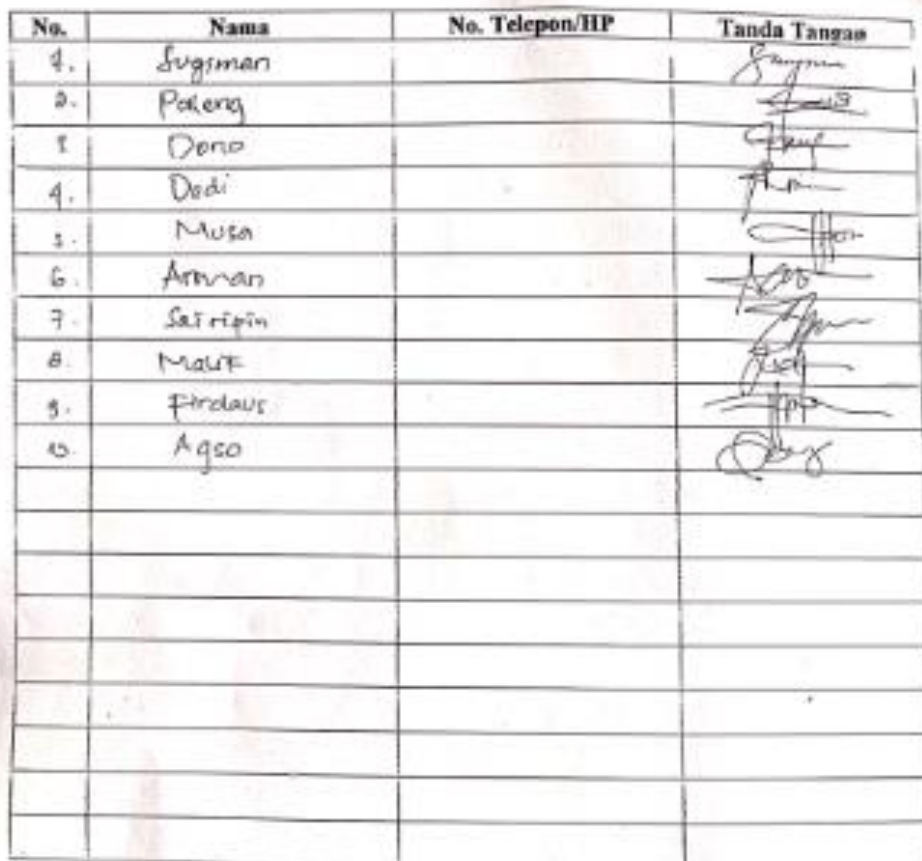 No. Nama No. Telepon/HP Tanda Tangan
1. Sugiman
2. Paleng
3 Dono
4. Dedi
5. Musa
6. Arman
7. Sairipin
8. Malik
9. Firdaus
10. Agso